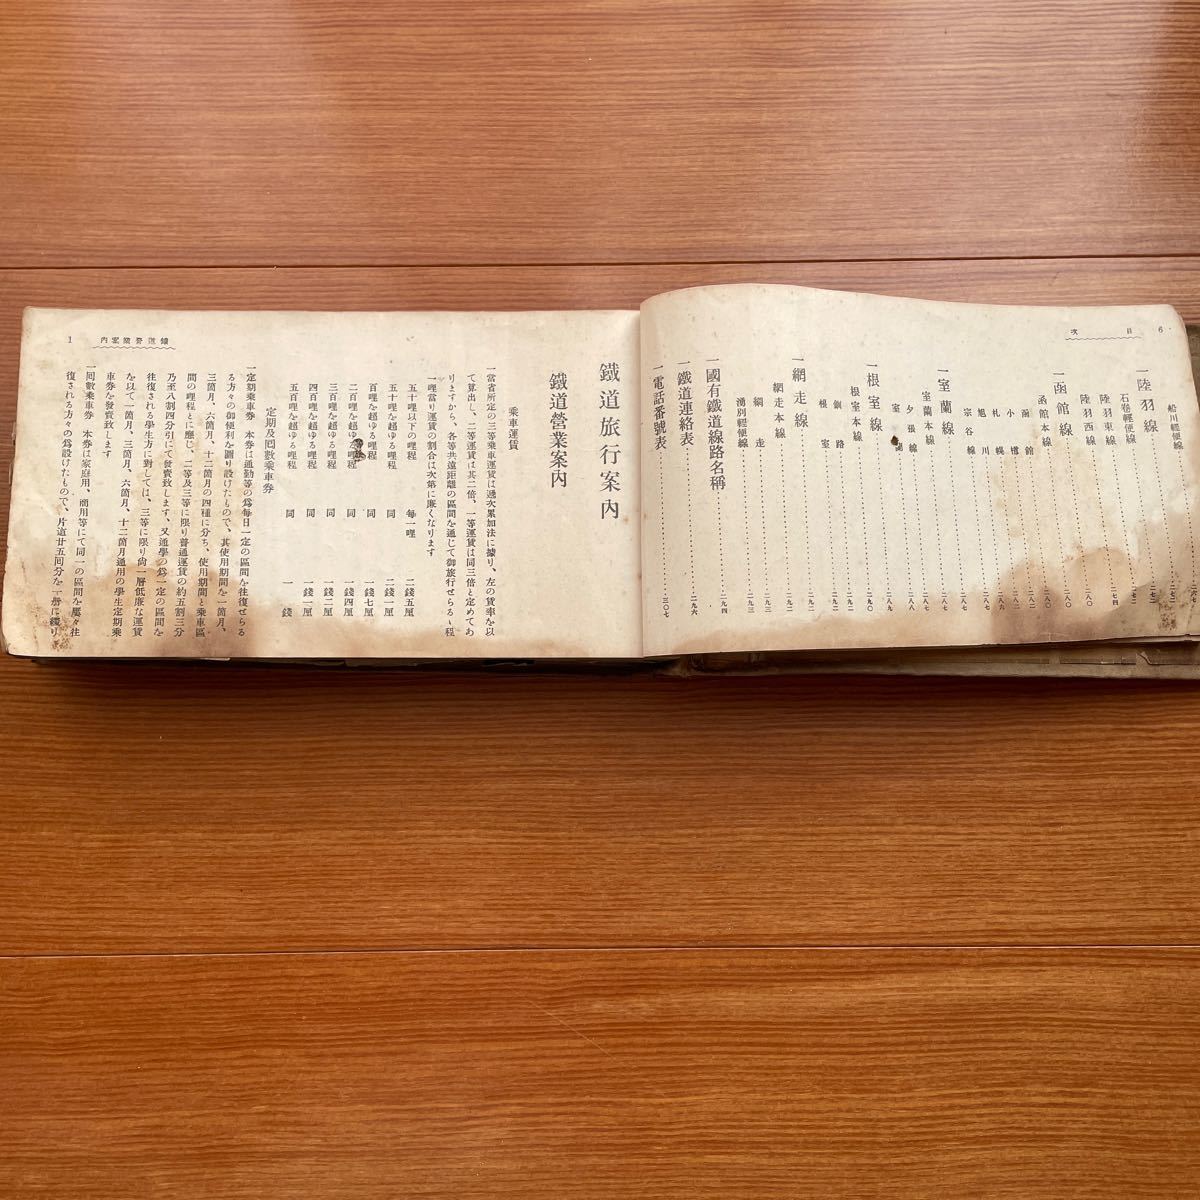 6 目次
船川輕便線
一陸羽線
石卷輕便線
陸羽東線
陸羽西線 二七四
一函館線 二八〇
函館本線 二八〇
函館
小樽
札幌
旭川
宗谷線
一室蘭線 二八七
室蘭本線 二八七
夕張線
室蘭
一根室線 二九〇
根室本線 二九二
釧路
根室
一網走線 二九二
網走本線 二九三
網走 二九三
湧別輕便線 二九三
一國有鐵道線路名稱 二九四
一鐵道連絡表 二九六
一電話番號表 三〇七
鐵道旅行案內
鐵道營業案內
乘車運賃
一當省所定の三等乘車運賃は遞次累加法に據り、左の賃率を以
て算出し、二等運賃は其二倍、一等運賃は同三倍と定めてあ
りますから、各等共遠距離の區間を通じて御旅行せらるゝ程
一哩當り運賃の割合は次第に廉くなります
五十哩以下の哩程 每一哩 二錢五厘
五十哩を超ゆる哩程 同 二錢一厘
百哩を超ゆる哩程 同 一錢七厘
二百哩を超ゆる哩程 同 一錢四厘
三百哩を超ゆる哩程 同 一錢二厘
四百哩を超ゆる哩程 同 一錢一厘
五百哩を超ゆる哩程 同 一錢
定期及回數乘車券
一定期乘車券 本券は通勤等の爲每日一定の區間を往復せらる
る方々の御便利を圖り設けたもので、其使用期間を一箇月、
三箇月、六箇月、十二箇月の四種に分ち、使用期間と乘車區
間の哩程とに應じ、二等及三等に限り普通運賃の約五割三分
乃至八割四分引にて發賣致します、又通學の爲一定の區間を
往復される學生方に對しては、三等に限り尙一層低廉な運賃
を以て一箇月、三箇月、六箇月、十二箇月通用の學生定期乘
車券を發賣致します
一回數乘車券 本券は家庭用、商用等にて同一の區間を屢々往
復される方々の爲設けたもので、片道廿五回分を一册に綴り
鐵道營業案內 1